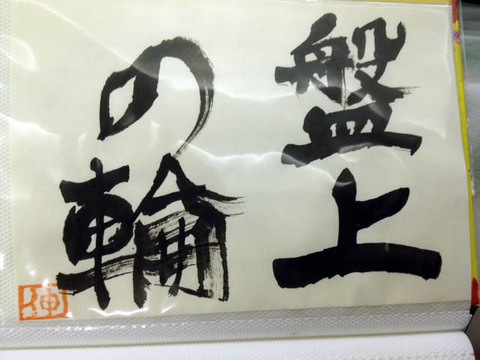 盤上
の輪